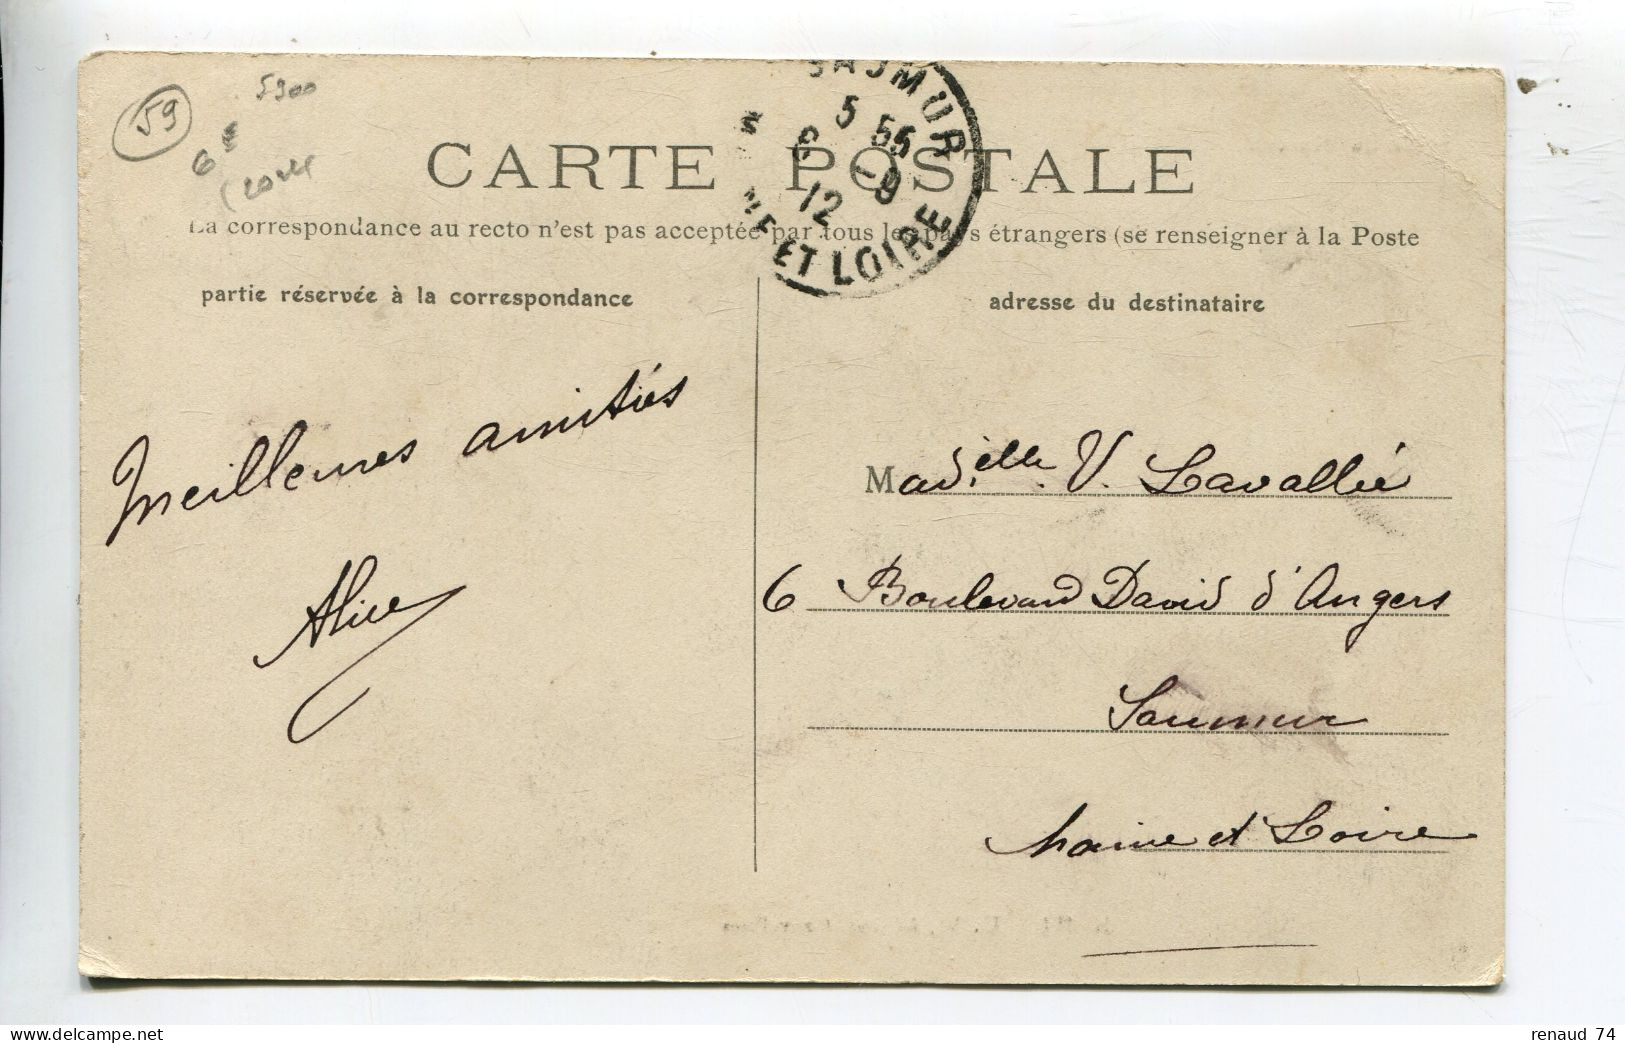 59
5900
6
SAUMUR
5 55
8 -9
12
NE ET LOIRE
CARTE POSTALE
La correspondance au recto n'est pas acceptée par tous les pays étrangers (se renseigner à la Poste
partie réservée à la correspondance
adresse du destinataire
Meilleures amitiés
Alice
Mad.elle. V. Lavallée
6 Boulevard David d'Angers
Saumur
Maine et Loire
renaud 74